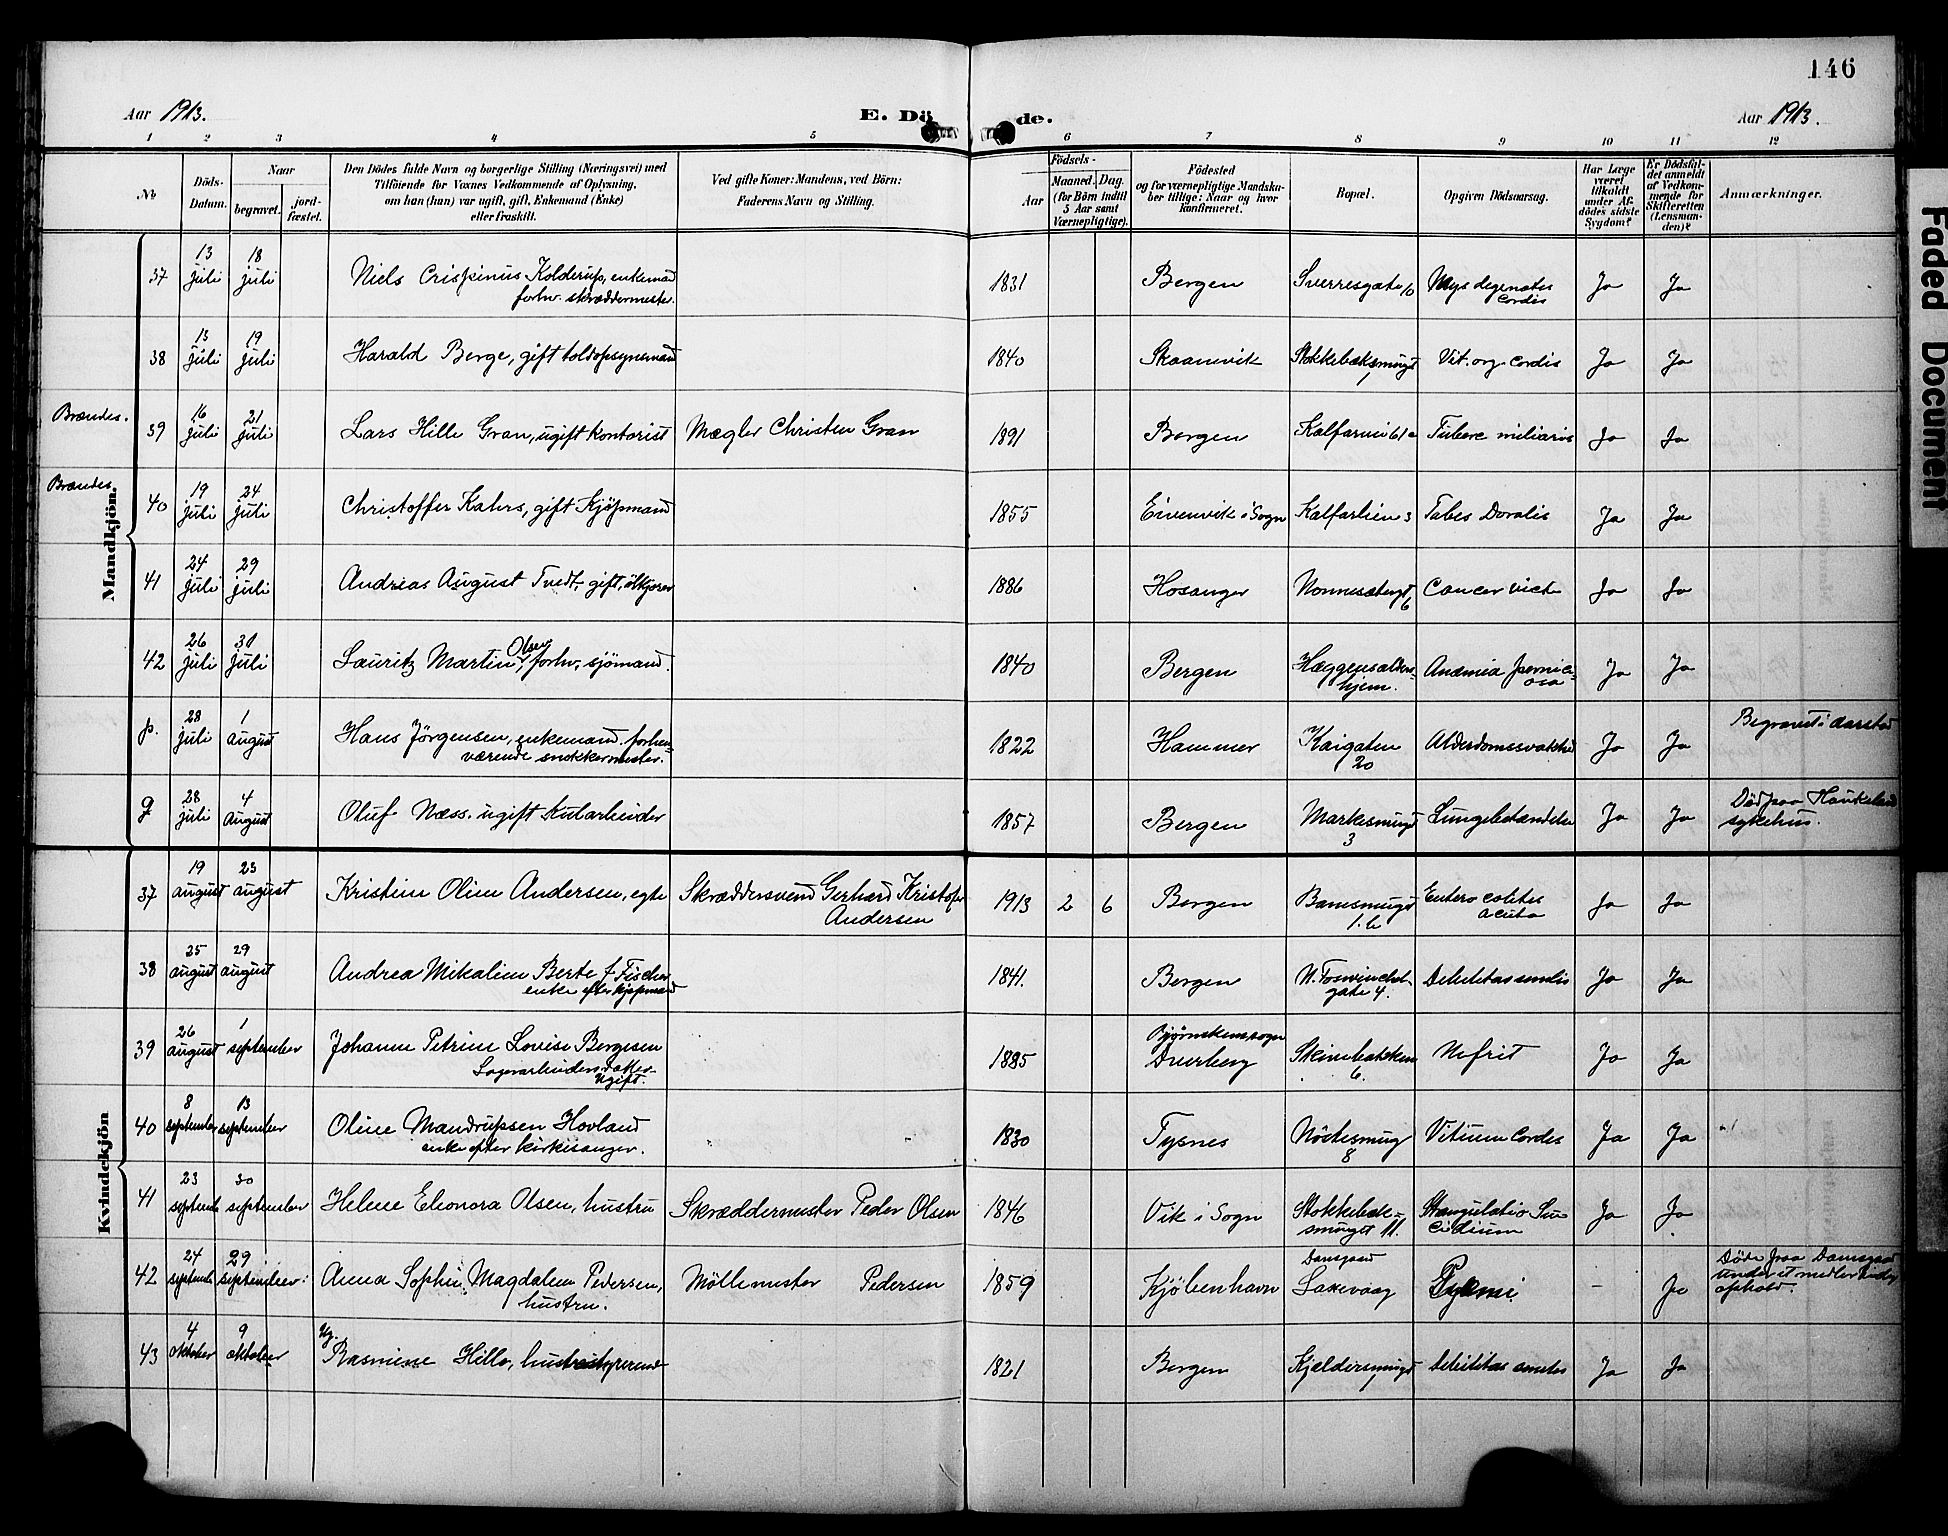 146
Aar 1913.
E. Dö
de.
Aar 1913.
1 2 3 4 5 6 7 8 9 10 11 12
No
Döds-
Datum.
Naar
begravet.
jord-
fæstet.
Den Dödes fulde Navn og borgerlige Stilling (Næringsvei) med
Tilföiende for Voxnes Vedkommende af Oplysning,
om han (hun) var ugift, gift, Enkemand (Enke)
eller fraskilt.
Ved gifte Koner: Mandens, ved Börn:
Faderens Navn og Stilling.
Födsels-
Aar
Maaned. Dag.
(for Börn indtil
5 Aar samt
Værnepligtige).
Födested
og for værnepligtige Mandska-
ber tillige: Naar og hvor
konfirmeret.
Bopæl.
Opgiven Dödsaarsag.
Har Læge
været
tilkaldt
under Af-
dödes sidste
Sygdom?
Er Dödsfal-
det anmeldt
af Vedkom-
mende for
Skifteretten
(Lensman-
den)?
Anmærkninger.
Mandkjön.
37 13 juli 18 juli Niels Crispinus Kolderup, enkemand
forhv. skræddermester.
1831 Bergen Sverresgate 10 Mys degenatis
cordis Ja Ja
38 13 juli 19 juli Harald Berge, gift toldopsynsmand 1840 Skaanevik Stokkebæksmugt
1 Vit. org cordis Ja Ja
Brændes.
39 16 juli 21 juli Lars Hille Gran, ugift kontorist Mægler Christen Gran 1891 Bergen Kalfarvei 61a Tuberc miliaris Ja Ja
Brændes
40 19 juli 24 juli Christoffer Kahrs, gift Kjöpmand 1855 Eivenvik i Sogn Kalfarlien 3 Tabes Doralis Ja Ja
41 24 juli 29 juli Andreas August Tvedt, gift, ölkjører 1886 Hosanger Nonnesætergt
6 Cancer Ja Ja
42 26 juli 31 juli Lauritz Martin Olsen, forhv. sjömand. 1840 Bergen
hjem. Anæmia pernici-
osa Ja Ja
p. 28 juli 1 august Hans Jörgensen, enkemand forhen-
værende snekkermester.
1822 Hammer Kaigaten
20 Alderdomssvakhed Ja Ja Begravet i Aarstad
q 28 juli 4 August Oluf Næss. ugift Kularbeider 1857 Bergen Markesmugt
3 Lungebetændelse Ja Ja Død paa Haukeland
sykehus.
Kvindekjön
37 19 august 23 august Kristine Oline Andersen, egte Skræddersvend Gerhard Kristofer
Andersen
1913 2 6 Bergen Banesmugt
1.b Entero colites
acuta Ja Ja
38 25 august 29 august Andrea Mikaline Berte f. Fischer
enke efter kjøpmand
1841. Bergen
gate 4. Debilitas senilis Ja Ja
39 26 august 1 september Johanne Petrine Lovise Bergesen
Ugift.
1885
Dverberg
6. Nefrit Ja Ja
40 8 september 13 september Oline Mandrupsen Hovland
enke efter kirkesanger.
1830 Tysnes Nöstesmug
8 Vitium Cordis Ja Ja
41 23 septemb 30 september Helene Eleonora Olsen, hustru Skræddermester Peder Olsen 1846 Vik i Sogn Stokkebæk-
smuget 11. Stangulatio Sui-
cidium Ja Ja.
42 24 septemb 29 september. Anna Sophie Magdalene Pedersen,
hustru.
Möllemester Pedersen 1859 Kjöbenhavn Damsgaard
Laxevaag Pyæmi – Ja Döde paa Damsgaard
under et midlertidig
ophold.
43 4 oktober 9 oktober Ug.
Rasmine Hille, husbestyrerinde 1821 Bergen Kjeldersmugt
1 Debilitas senilis Ja Ja
Faded Document